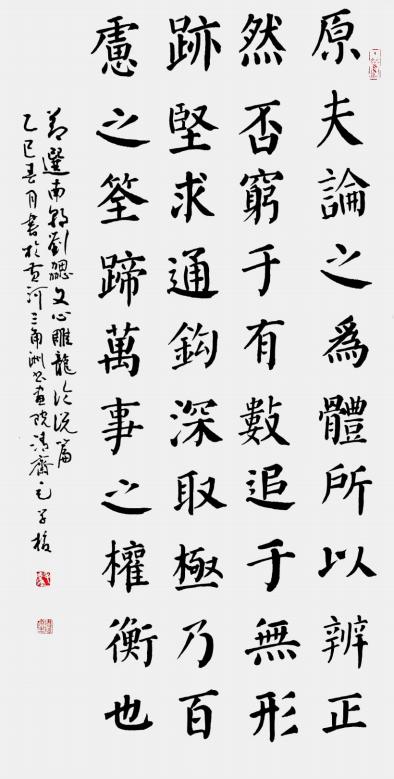 原夫論之為體所以辨正
然否窮于有數追于無形
跡堅求通鈎深取極乃百
慮之筌蹄萬事之權衡也
節選南朝劉勰文心雕龍論說篇
乙巳春月書於黃河三角洲書畫院清齋